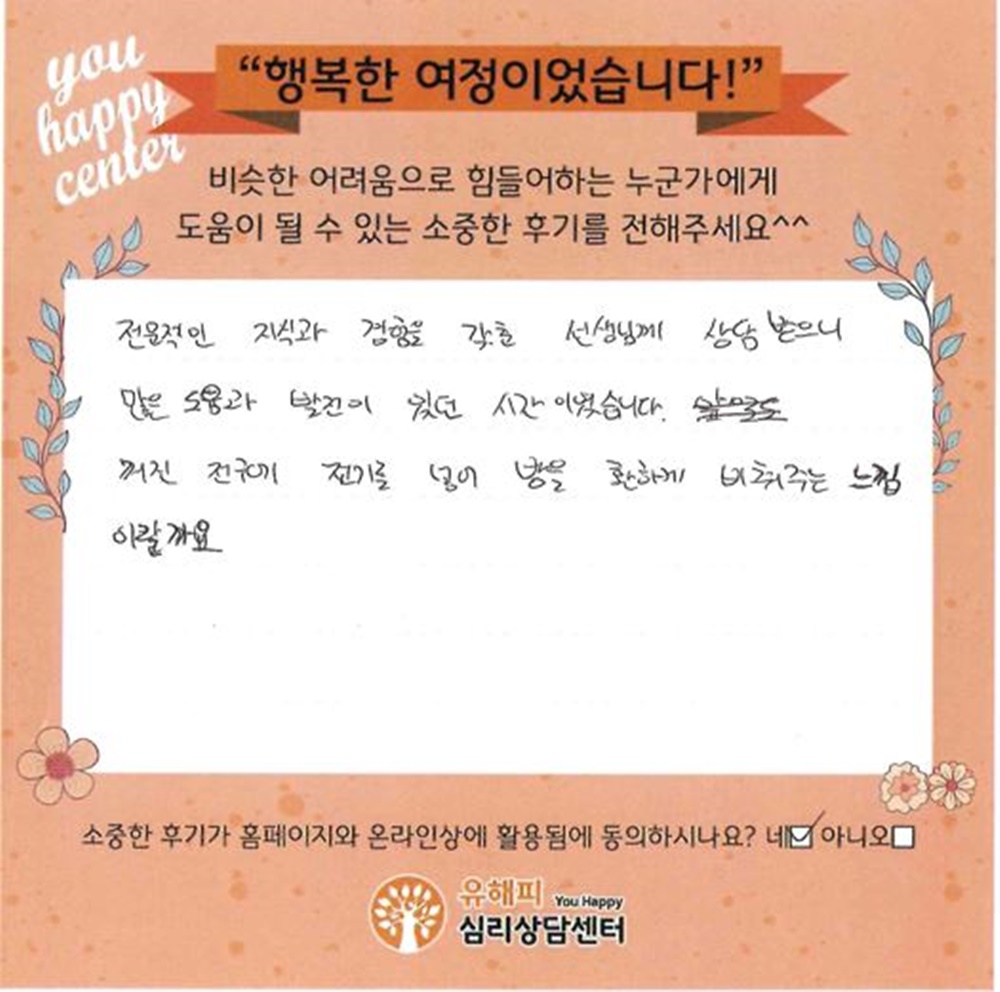 you
happy
center
“행복한 여정이었습니다!”
비슷한 어려움으로 힘들어하는 누군가에게
도움이 될 수 있는 소중한 후기를 전해주세요^^
전문적인 지식과 경험을 갖춘 선생님께 상담 받으니
많은 도움과 발견이 있던 시간이었습니다.
꺼진 전구에 전기를 넣어 방을 환하게 비춰주는 느낌
이랄까요
소중한 후기가 홈페이지와 온라인상에 활용됨에 동의하시나요? 네☑ 아니오□
유해피 You Happy
심리상담센터